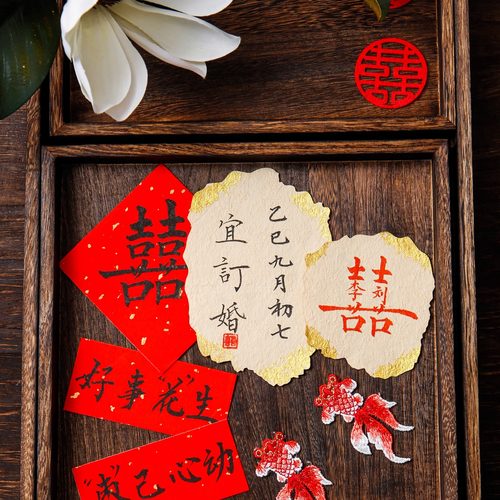 囍
囍
乙巳九月初七
宜訂婚
囍
李 刘
好事“花”生
心动